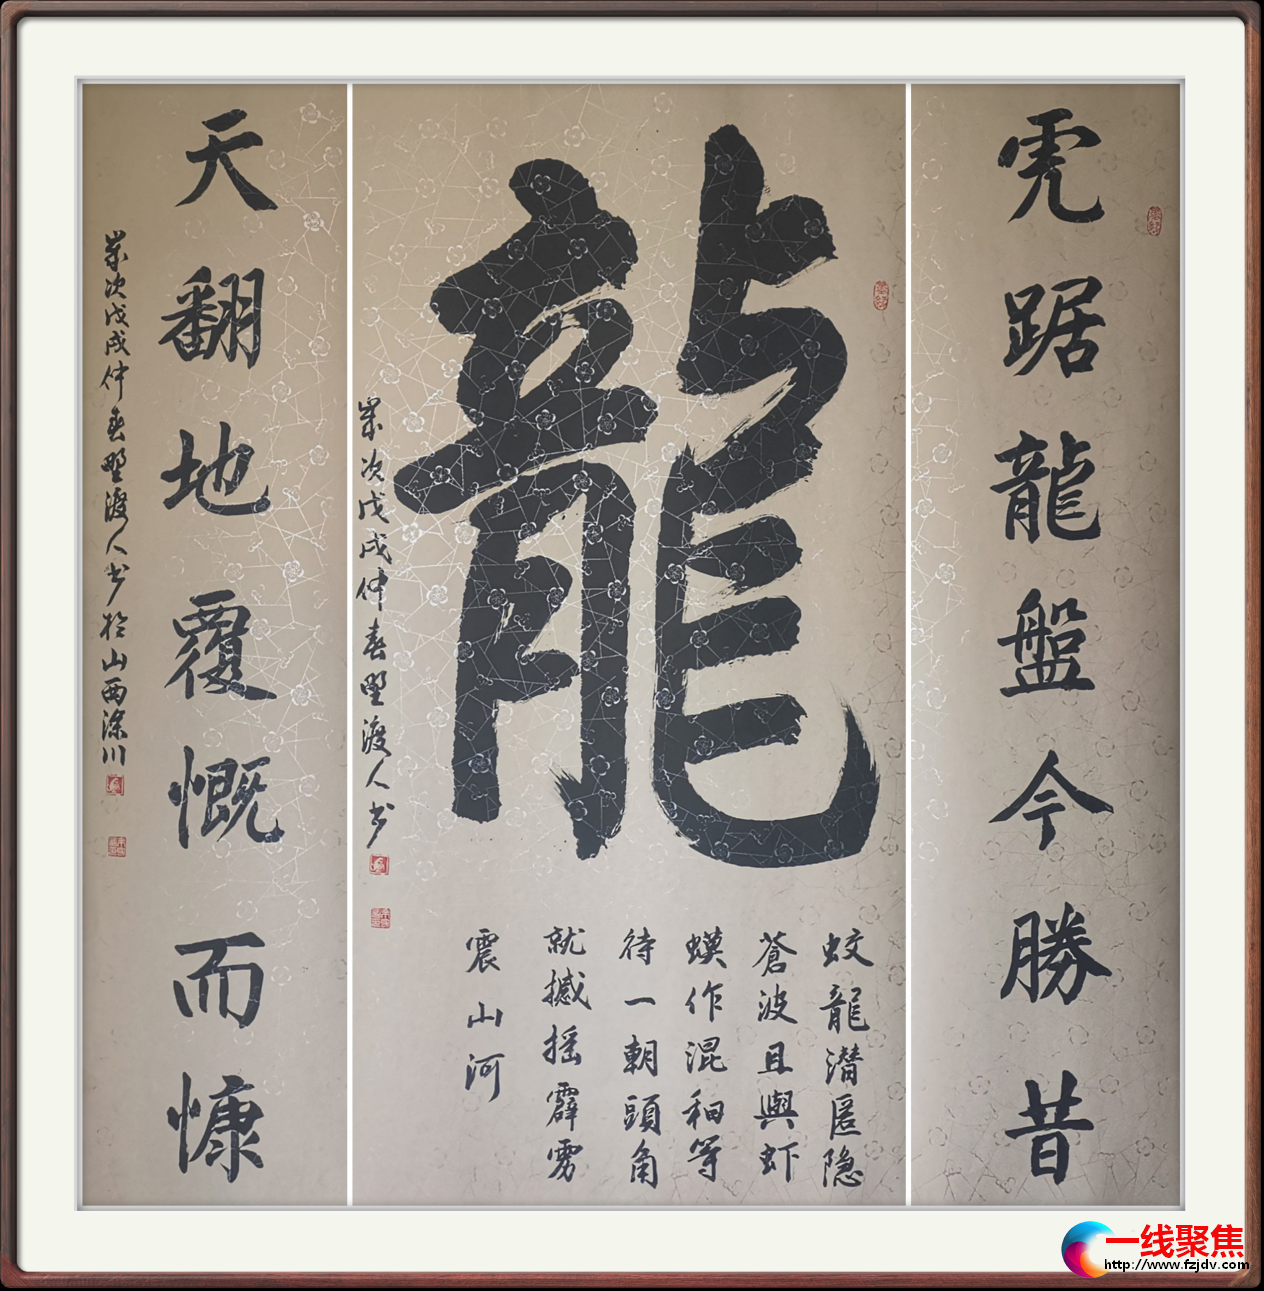 虎踞龍盤今勝昔
龍
蛟龍潛匿隐
蒼波且與虾
蟆作混和等
待一朝頭角
就撼摇霹雳
震山河
嵗次戊戌仲春野渡人书
天翻地覆慨而慷
嵗次戊戌仲春野渡人书於山西川
一线聚焦
http://www.fzjdv.com